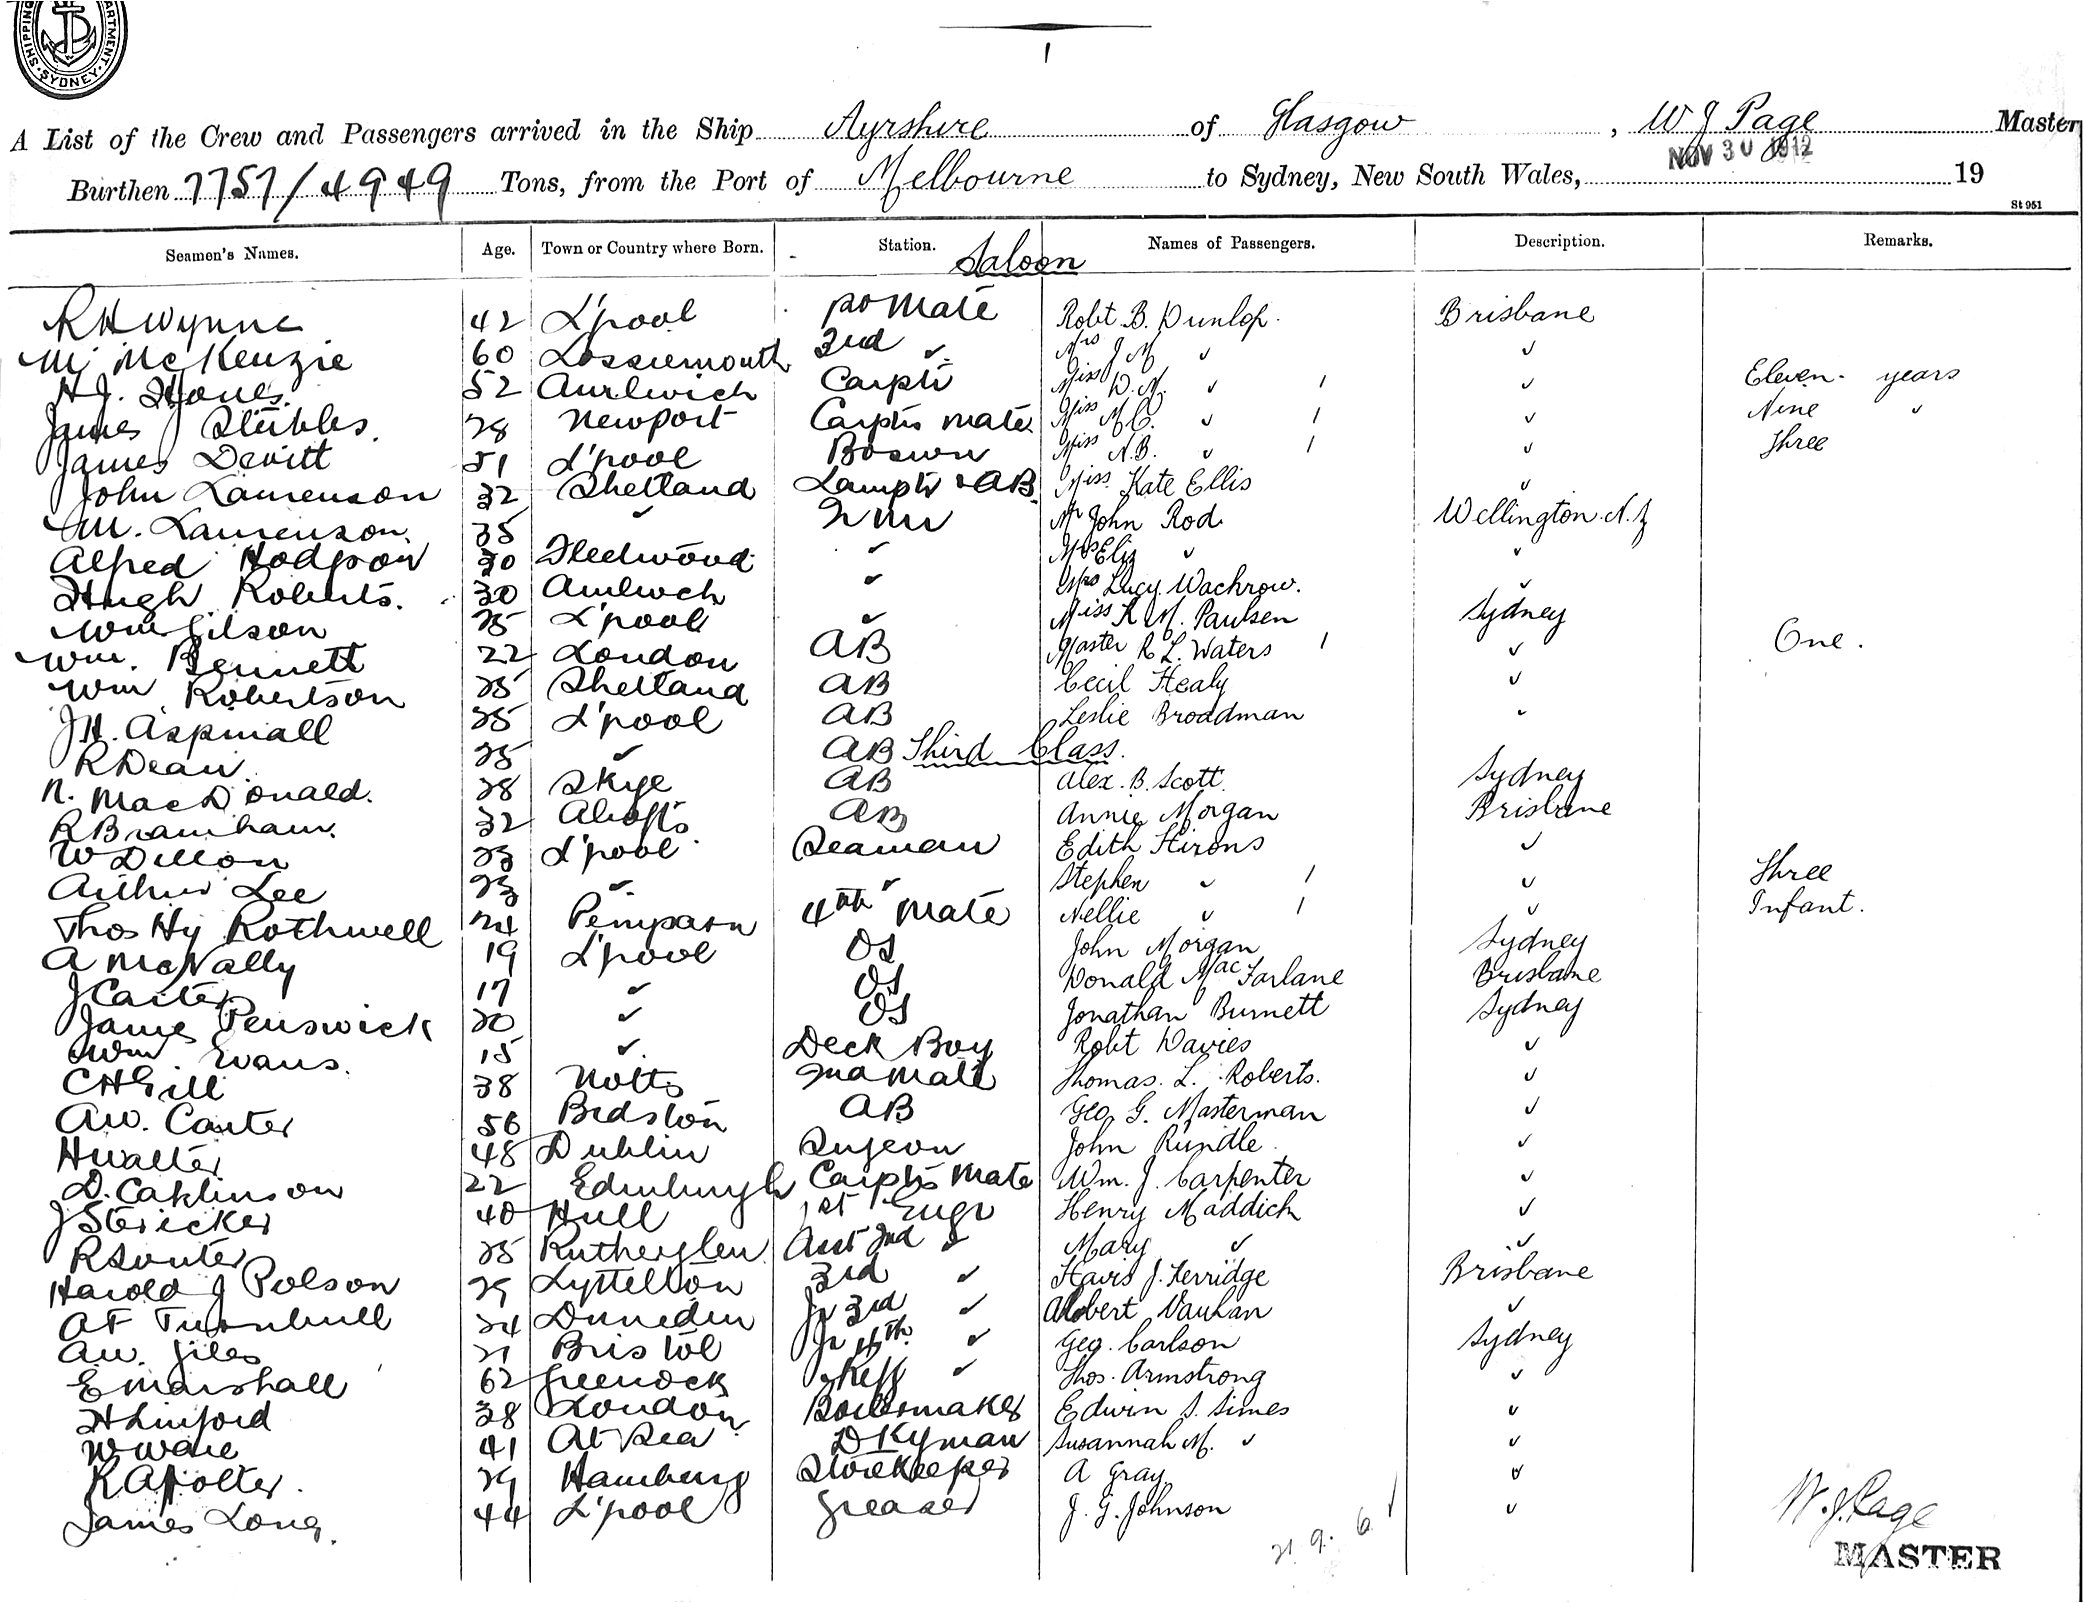 SHIPPING DEPARTMENT SYDNEY
1
A List of the Crew and Passengers arrived in the Ship Ayrshire of Glasgow , W J Page Master
NOV 30 1912
Burthen 7757/4949 Tons, from the Port of Melbourne to Sydney, New South Wales, 19
St 951
Seamen's Names. Age. Town or Country where Born. Station. Names of Passengers. Description. Remarks.
Saloon
R H Wynne 42 L'pool Mate Robt B. Dunlop. Brisbane
M McKenzie 60 Lossiemouth 3rd ✓ Mrs J M ✓ ✓
H. J. Jones 52 Carptr Miss D. M. ✓ 1 ✓ Eleven years
James Stubbs. 28 Newport Carptrs Mate Miss M C. ✓ 1 ✓ Nine ✓
James Devitt 51 L'pool Bosun Miss N. B. ✓ 1 ✓ Three
John Laurenson 32 Shetland Lamptr & AB Miss. Kate Ellis ✓
M. Laurenson. 35 ✓ Mr John Rod Wellington N. Z
Alfred Hodgson 30 Fleetwood ✓ Mrs Eliz ✓ ✓
Hugh Roberts. 30 Amlwch ✓ Mrs Lucy Wachrow. ✓
Wm Gilson 25 L'pool ✓ Miss K M. Paulsen Sydney
Wm. Bennett 22 London AB Master R L. Waters 1 ✓ One.
Wm Robertson 25 Shetland AB Cecil Healy ✓
J H. Aspinall 25 L'pool AB Leslie Broadman ✓
R Dean. 25 ✓ AB Third Class.
N. MacDonald. 28 Skye AB Alex. B. Scott. Sydney
R Bramham. 32 AB Annie Morgan Brisbane
W Dillon 23 L'pool Seaman Edith Hirons ✓
Arthur Lee 23 ✓ ✓ Stephen ✓ 1 ✓ Three
Thos Hy Rothwell 24 4th Mate Nellie ✓ 1 ✓ Infant.
A McNally 19 L'pool OS John Morgan Sydney
J Carter 17 ✓ OS Donald MacFarlane Brisbane
James Penswick 20 ✓ OS Jonathan Burnett Sydney
Wm. Evans. 15 ✓ Deck Boy Robt Davies ✓
C H Gill 38 Notts 2nd Mate Thomas. L. Roberts. ✓
A W. Carter 56 Bidston AB Geo. G. Masterman ✓
H Walter 48 Dublin Surgeon John Rundle ✓
D. 22 Edinburgh Carptrs Mate Wm. J. Carpenter ✓
J Stericker 40 Hull 1st Engr Henry Maddick ✓
R Souter 25 Rutherglen Asst 2nd ✓ Mary ✓ ✓
Harold J Polson 29 Lyttelton 3rd ✓ J. Ferridge Brisbane
A T Turnbull 24 Dunedin Jr 3rd ✓ Albert Vauhan ✓
A W. Giles 21 Bristol Jr 4th ✓ Geo. Carlson Sydney
E Marshall 62 Greenock Refg ✓ Thos. Armstrong ✓
H Linford 28 London Boilermaker Edwin S. Simes ✓
W Ware 41 At Sea DKyman Susannah M. ✓ ✓
R A Potter. 29 Hamburg Storekeeper A Gray ✓
James Long. 44 L'pool Greaser J. G. Johnson ✓
21. 9. 6. 1
W. J. Page
MASTER